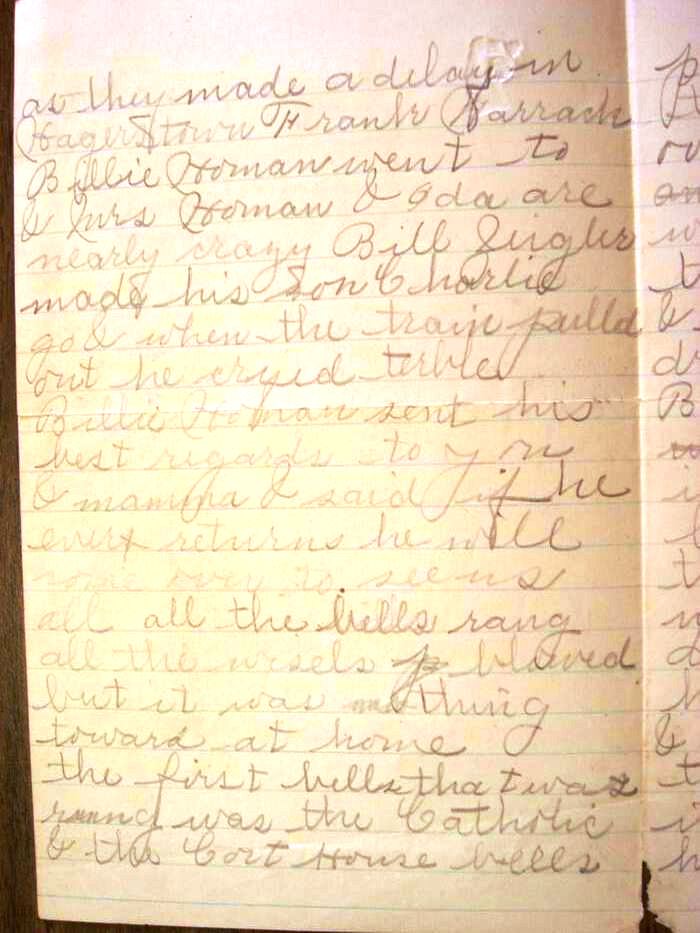 as they made a delay in
Hagerstown Frank Harrach
Billie Homan went to
& Mrs Homan & Ida are
nearly crazy Bill Zeigler
made his son Charlie
go & when the train pulld
out he cryed terble
Billie Homan sent his
best regards to you
& mamma & said if he
ever returns he will
come over to see us
all all the bells rang
all the wisels blowed
but it was nothing
toward at home
the first bells that was
rung was the Catholic
& the Cort House bells